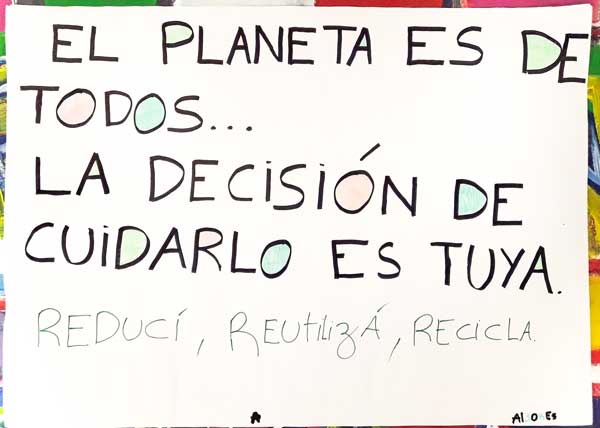 EL PLANETA ES DE
TODOS...
LA DECiSiÓN DE
CUiDARLO ES TUYA.
REDUCÍ, REUtilizÁ, RECiCLA.
A